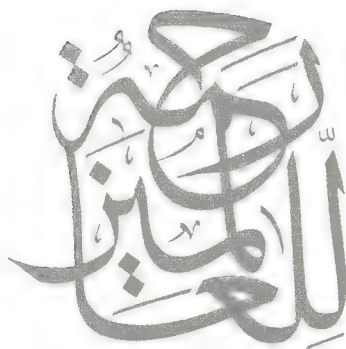 رحمة
للعالمين